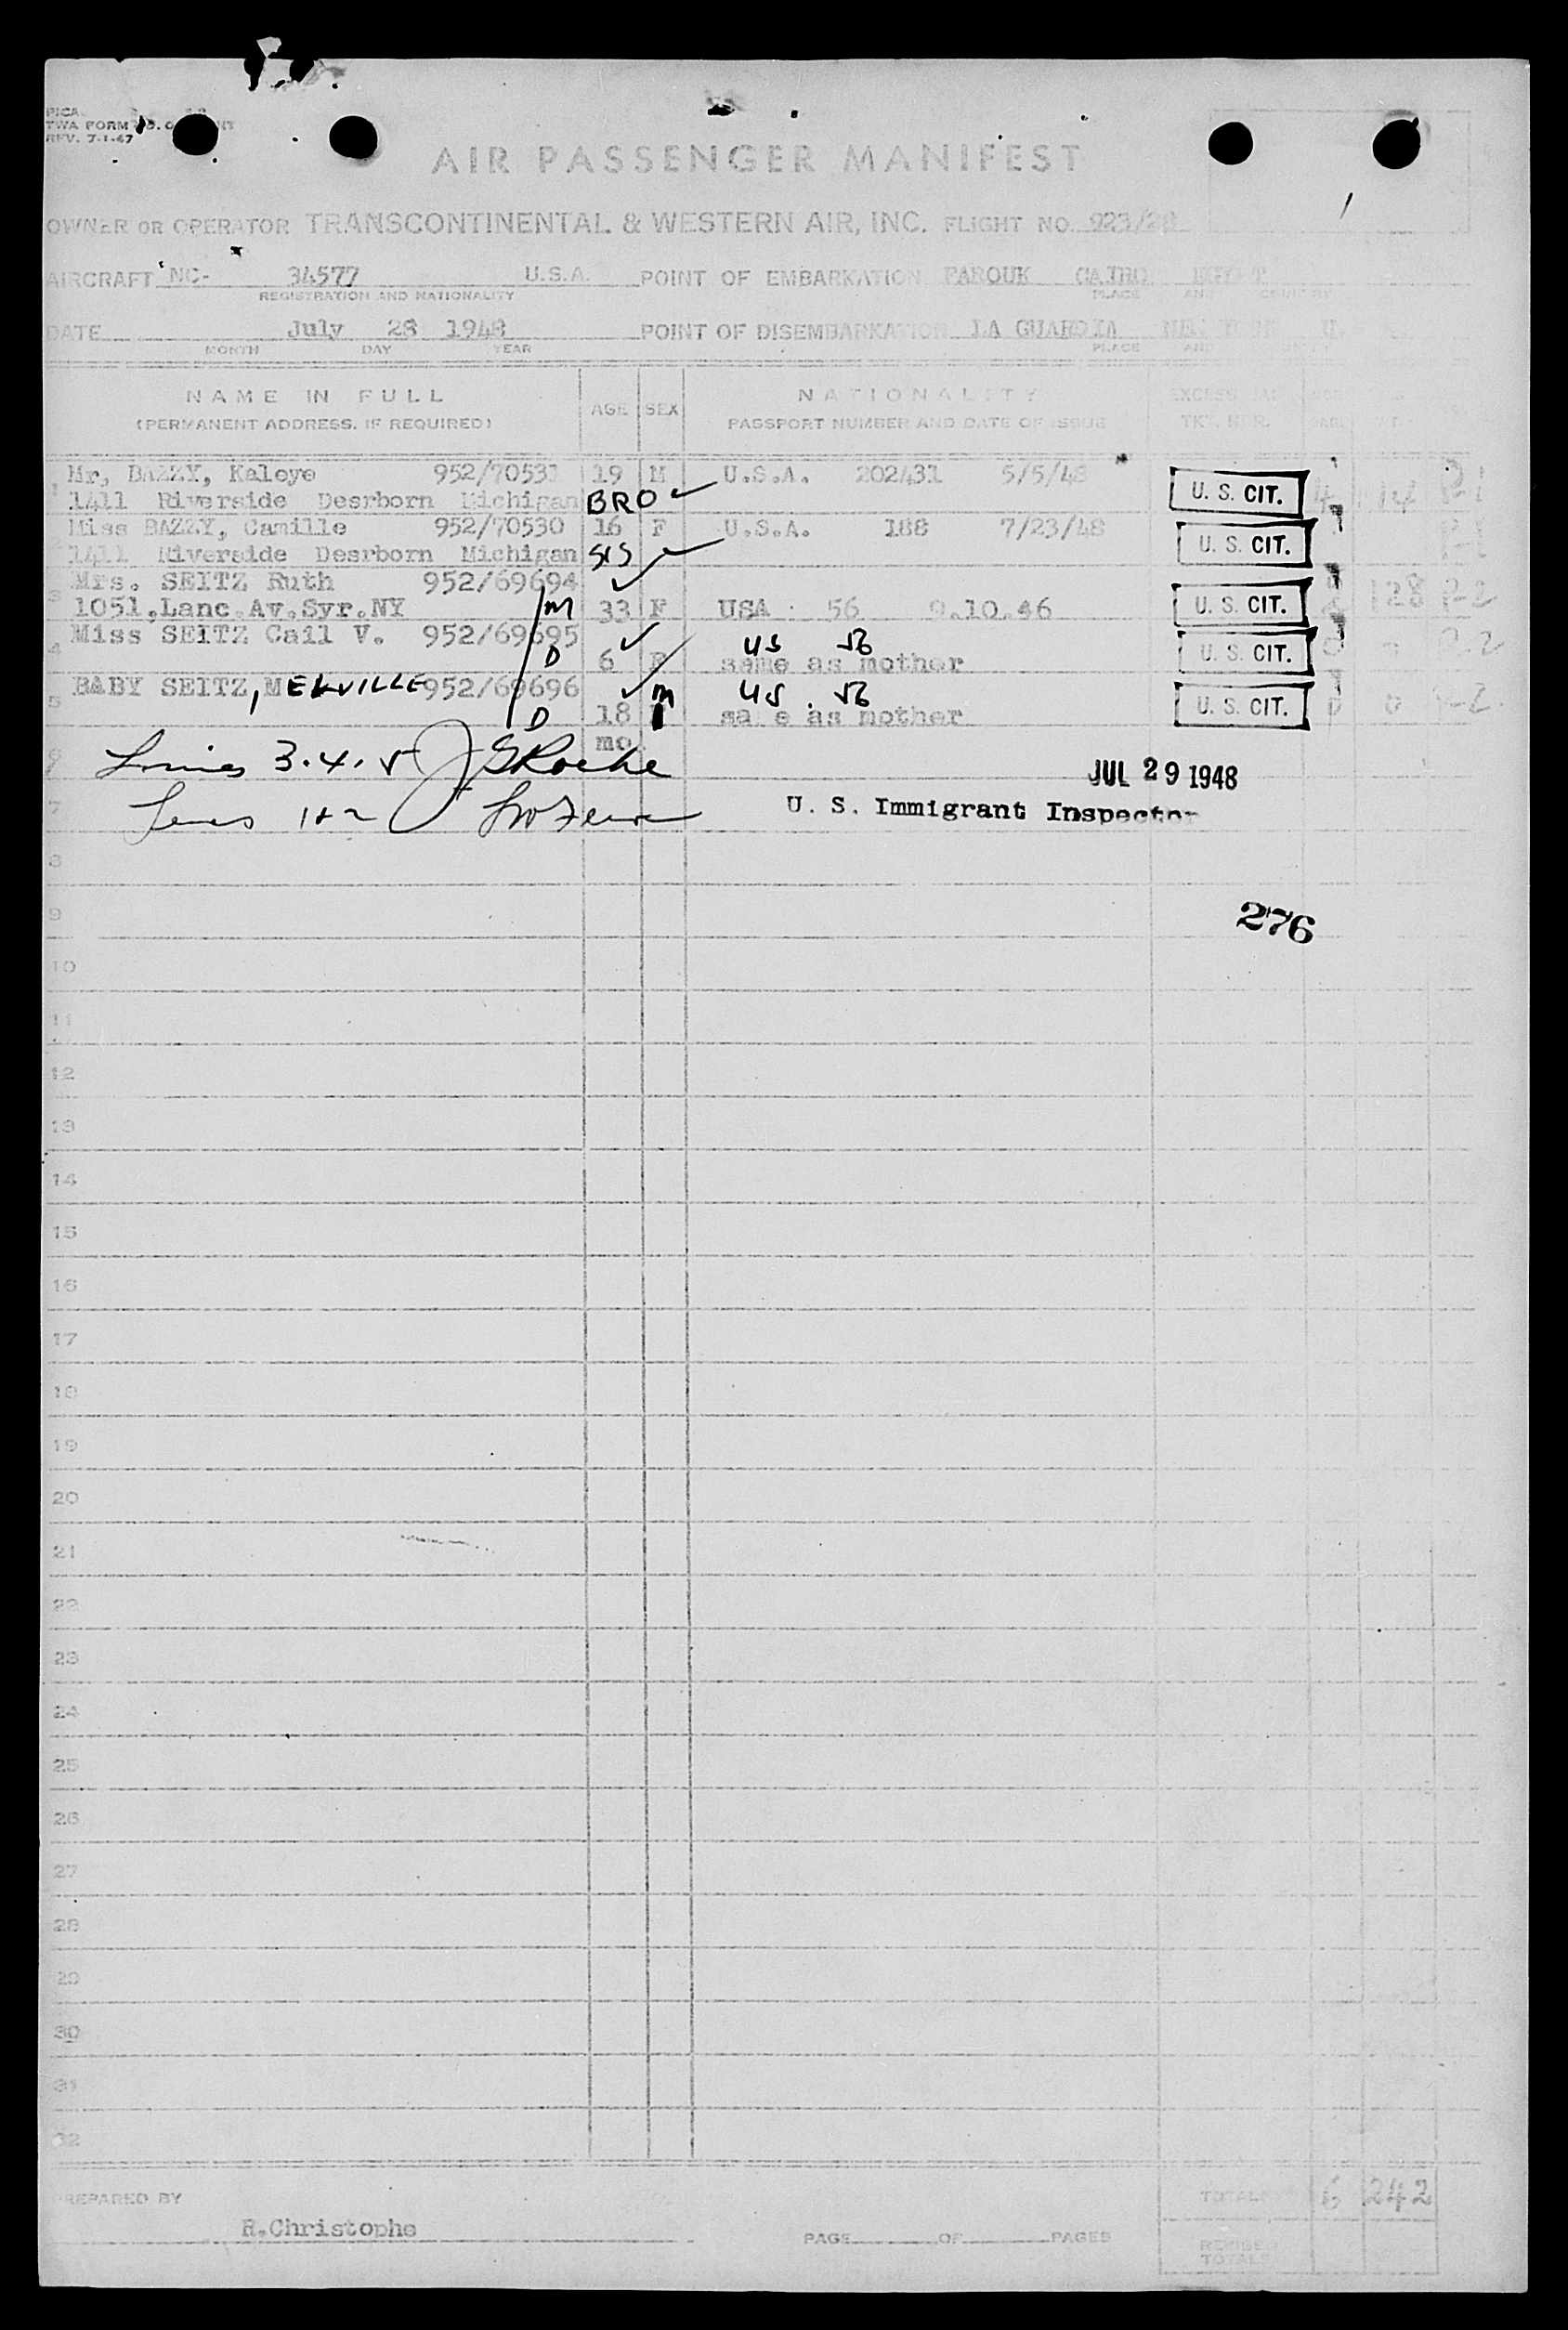 TWA FORM
REV. 7-1-47
AIR PASSENGER MANIFEST
OWNER OR OPERATOR TRANSCONTINENTAL & WESTERN AIR, INC. FLIGHT NO. 923/28
AIRCRAFT NC- 34577 U.S.A. POINT OF EMBARKATION FAROUK CAIRO EGYPT
REGISTRATION AND NATIONALITY PLACE AND COUNTRY
DATE July 28 1948 POINT OF DISEMBARKATION LA GUARDIA NEW YORK U.
MONTH DAY YEAR PLACE AND
NAME IN FULL AGE SEX NATIONALITY EXCESS
(PERMANENT ADDRESS, IF REQUIRED) PASSPORT NUMBER AND DATE OF ISSUE TKT. NBR.
1 Mr, BAZZY, Kaleye 952/70531 19 M U.S.A. 202431 5/5/48 U. S. CIT. 4 114 P-1
1411 Riverside Desrborn Michigan BRO
Miss BAZZY, Camille 952/70530 16 F U.S.A. 188 7/23/48 U. S. CIT.
1411 Riverside Desrborn Michigan SIS
3 Mrs. SEITZ Ruth 952/69694
1051,Lanc.Av.Syr.NY m 33 F USA 56 9.10.46 U. S. CIT. 128 P-2
4 Miss SEITZ Cail V. 952/69695 US 56
D 6 F same as mother U. S. CIT. 0 0 P-2
5 BABY SEITZ, MELVILLE 952/69696 m US. 56
D 18 same as mother U. S. CIT. 0 0 P-2.
6 mo.
Lines 3.4.5 J G Roche
JUL 29 1948
7 Lines 1+2
U. S. Immigrant Inspector
8
9
276
10
11
12
13
14
15
16
17
18
19
20
21
22
23
24
25
26
27
28
29
30
31
32
PREPARED BY TOTALS 6 242
R.Christophe
PAGE OF PAGES
REVISED
TOTALS